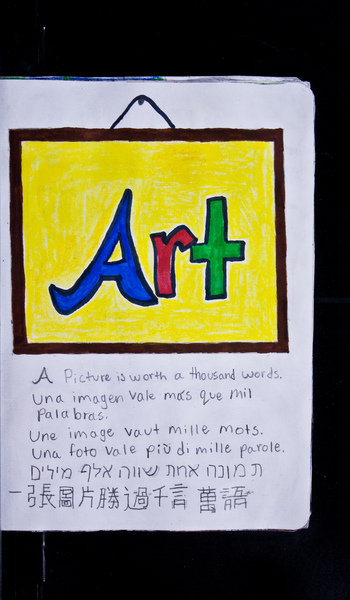 Art
A Picture is worth a thousand words.
Una imagen vale más que mil
palabras.
Une image vaut mille mots.
Una foto vale più di mille parole.
תמונה אחת שווה אלף מילים
一張圖片勝過千言萬語